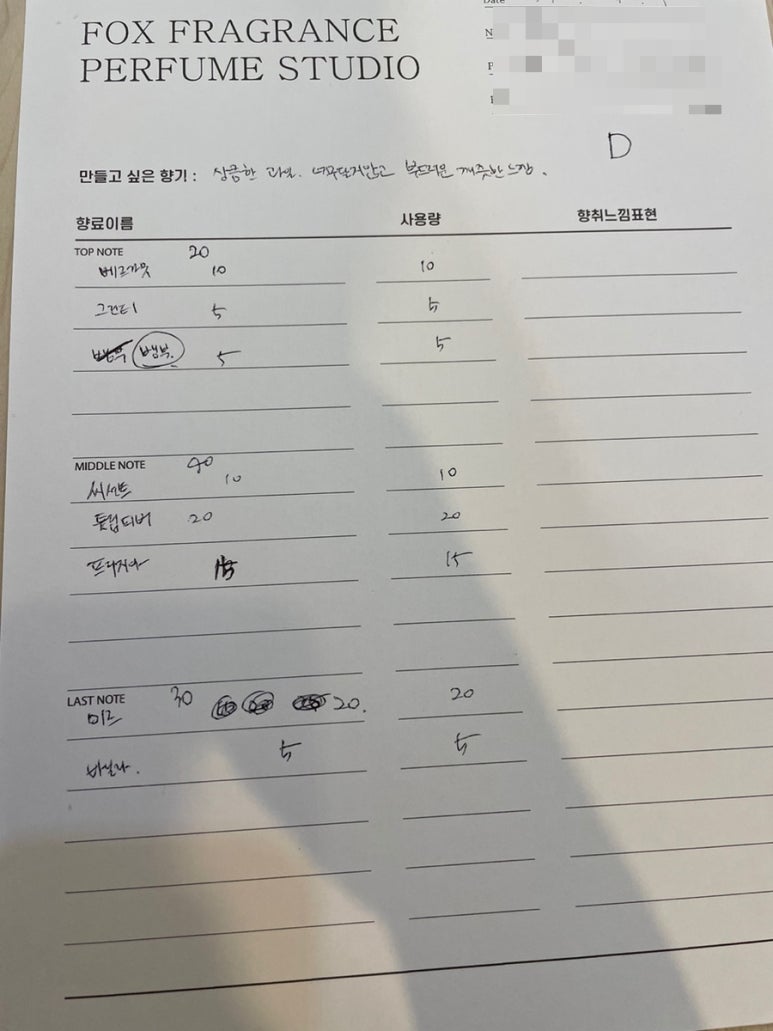 FOX FRAGRANCE
PERFUME STUDIO
Date
D
만들고 싶은 향기 : 상큼한 과일. 너무달지않고 부드러운 깨끗한느낌.
향료이름 사용량 향취느낌표현
TOP NOTE 20
베르가못 10 10
그린티 5 5
뱀부. 5 5
MIDDLE NOTE 40
10 10
튤립티버 20 20
프리지아 15 15
LAST NOTE 30
머스크 20. 20
바닐라. 5 5